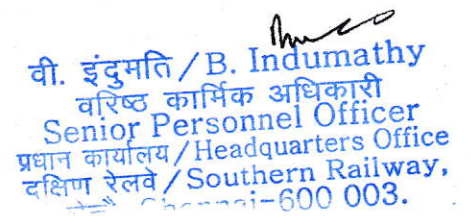 वी. इंदुमति / B. Indumathy
वरिष्ठ कार्मिक अधिकारी
Senior Personnel Officer
प्रधान कार्यालय / Headquarters Office
दक्षिण रेलवे / Southern Railway,
Chennai-600 003.